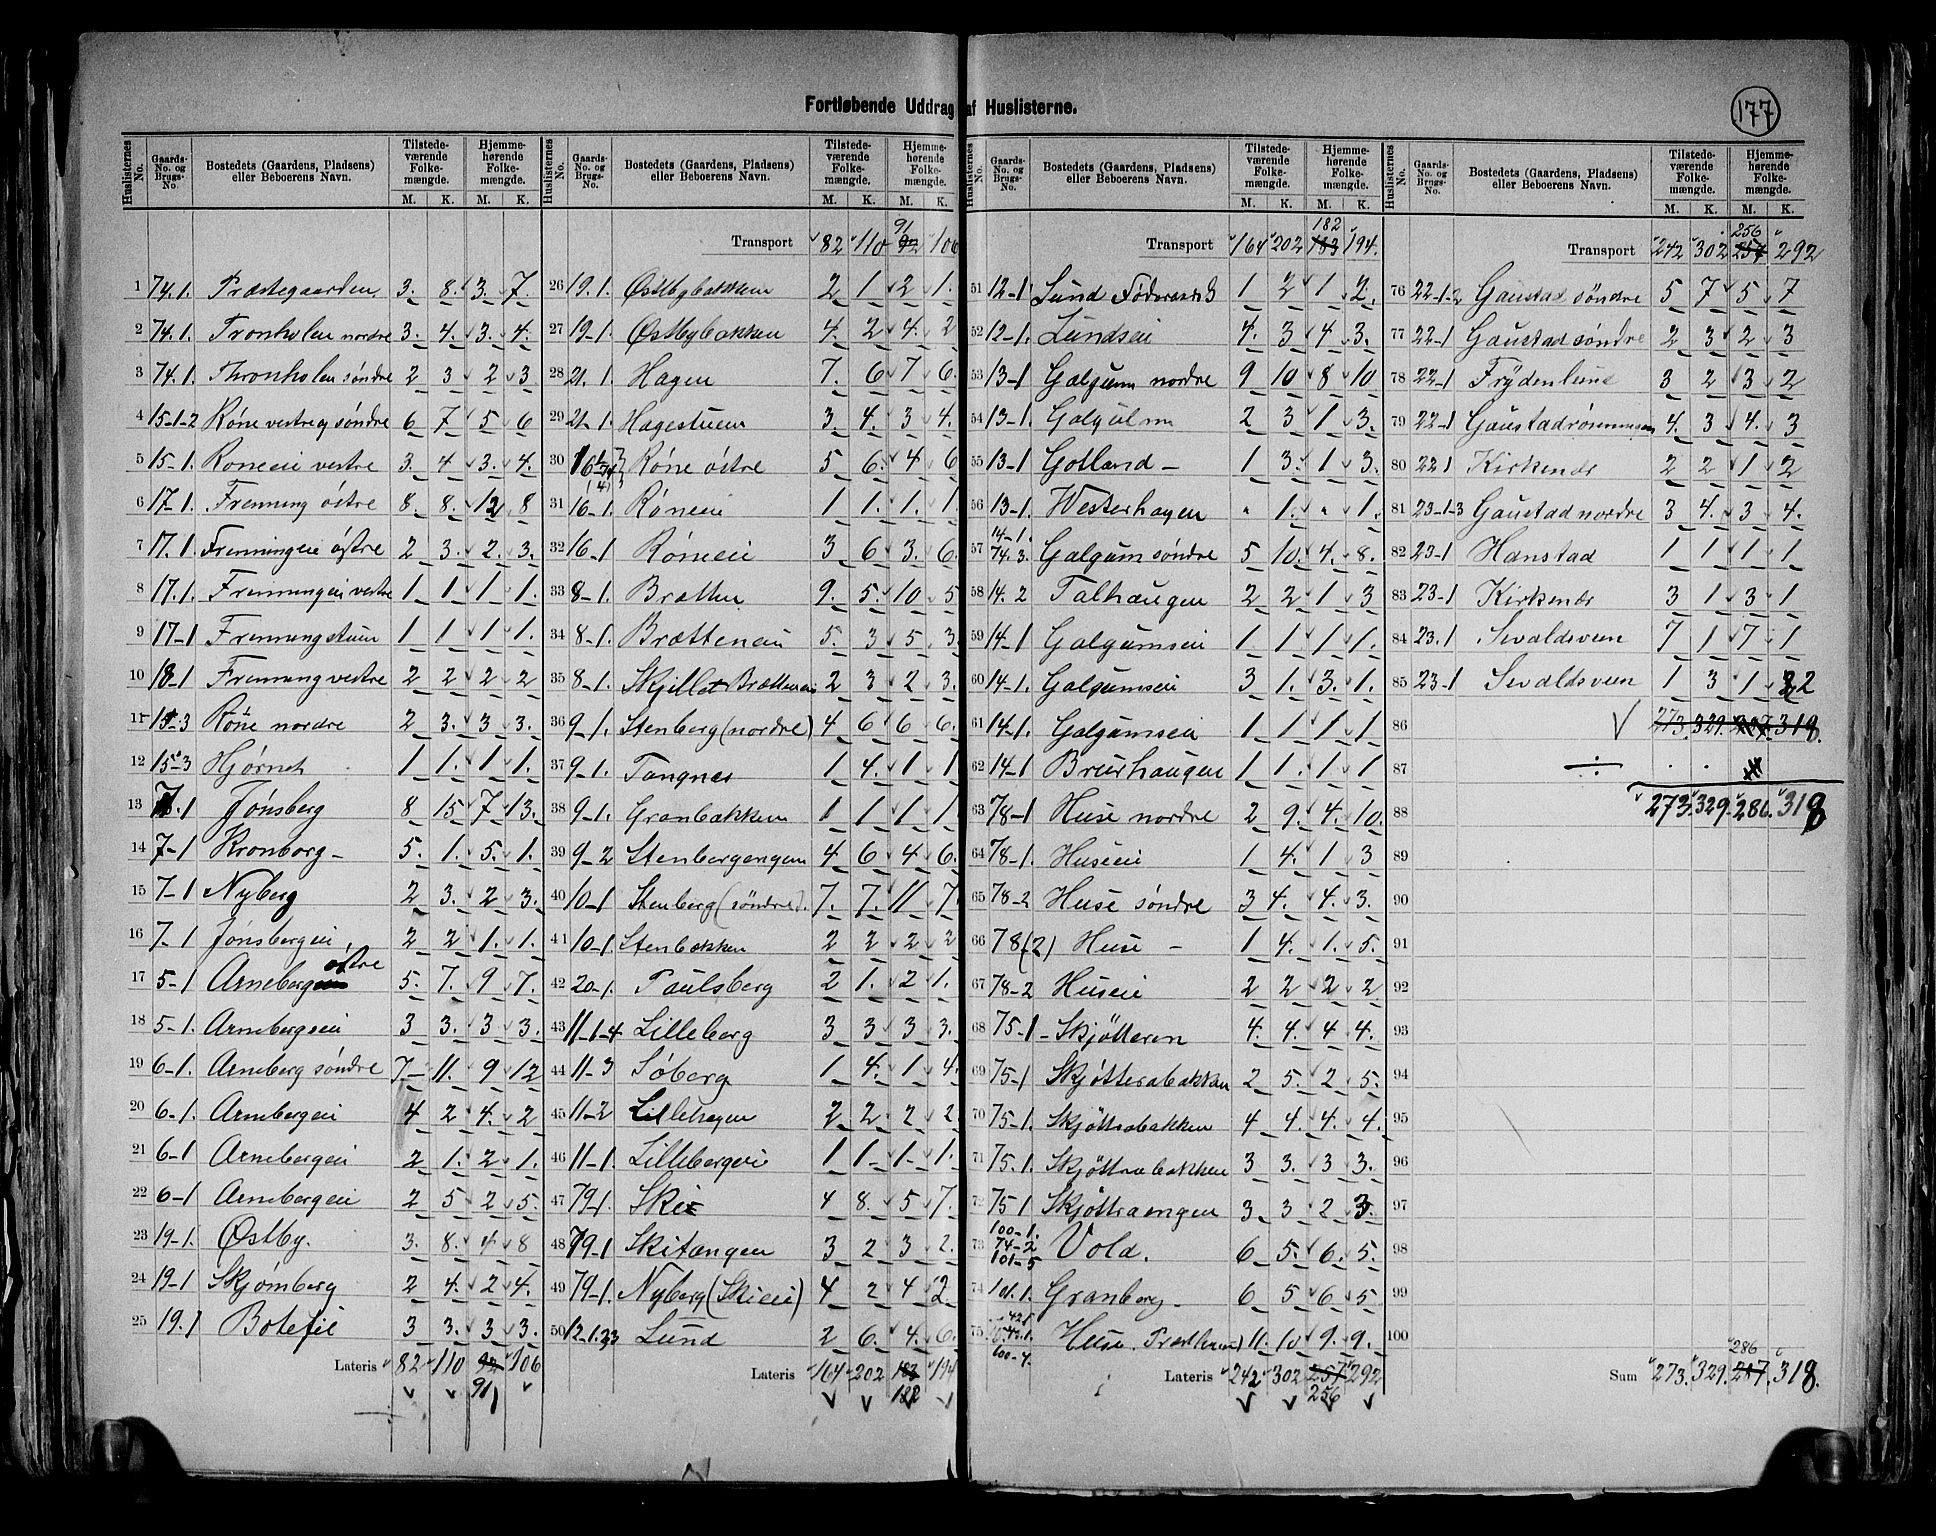 Fortløbende Uddrag af Huslisterne.
177
Huslisternes No. Gaards-No. og Brugs-No. Bostedets (Gaardens, Pladsens) eller Beboerens Navn. Tilstedeværende Folkemængde. M. K. Hjemmehørende Folkemængde. M. K.
1 74.1. Præstegaarden 3. 8. 3. 7
2 74.1. Tronholen nordre 3. 4. 3. 4.
3 74.1. Thronholen søndre 2 3 2 3
4 15-1-2 Røne vestre og søndre 6 7 5 6
5 15-1. Roneeie vestre 3. 4 3. 4.
6 17-1. Frenning østre 8. 8. 12 8
7 17.1. Frenningeie østre 2 3. 2. 3.
8 17.1. Frenningeie vestre 1 1 1 1.
9 17-1 Frenningstuen 1 1 1 1.
10 18-1 Frenning vestre 2 2 2 2
11 15-3 Røne nordre 2 3. 3 3.
12 15-3 Hjørnet 1 1. 1 1.
13 7.1 Jønsberg 8 15 7 13.
14 7-1 Kronborg- 5. 1. 5. 1.
15 7-1 Nyberg 2 3. 2 3.
16 7-1 Jønsbergeie 2 2 1. 1.
17 5-1 Arneberg østre 5. 7. 9 7.
18 5-1. Arnebergseie 3 3. 3 3.
19 6-1. Arneberg søndre 7 11. 9 12
20 6-1. Arnebergeie 4 2 4. 2
21 6-1 Arnebergeie 2 1. 2 1.
22 6-1 Arnebergeie 2 5 2 5.
23 19-1. Østby. 3. 8. 4 8
24 19-1 Skjømberg 2 4. 2 4.
25 19.1 Botefie 3 3. 3 3.
Lateris 82 110 92 106
91
Transport 82 110 92 106
91
26 19.1. Østbybakken 2 1 2 1.
27 19-1. Østbybakken 4. 2 4. 2
28 21.1. Hagen 7. 6 7 6.
29 21-1. Hagestuen 3 4. 3 4.
30 16 Røne østre 5 6. 4 6
31 16-1. Røneie 1 1. 1. 1
32 16-1 Røneeie 3 6 3. 6.
33 8-1. Brætten 9. 5. 10 5
34 8-1. Brætteneie 5. 3 5. 3.
35 8-1. Skjillet Bretteneie 2 3 2 3.
36 9-1. Stenberg (nordre) 4 6 6 6.
37 9-1. Tangnes 1 4. 1 1
38 9-1. Granbakken 1 1 1 1
39 9-2 Stenbergengen 4 6 4 6.
40 10-1 Stenberg (søndre). 7. 7. 11 7.
41 10-1. Stenbakken 2 2 2 2
42 20-1. Paulsberg 2 1. 2 1.
43 11-1-4 Lilleberg 3 3 3 3.
44 11-3 Søberg 1 4. 1 4.
45 11-2 Lillehagen 2 2 2 2
46 11-1. Lillebergeie 1 1 1 1.
47 79-1 Skie 4 8. 5 7.
48 79-1 Skitangen 3 2 3 2.
49 79-1. Nyberg (Skieie) 4 2 4 2
50 12-1.2.3 Lund 2 6. 4. 6.
Lateris 164 202 183 194
182
Transport 164 202 183 194.
182
51 12-1 Lund Føderaads 1 2 1 2.
52 12-1. Lundseie 4. 3 4 3.
53 13-1 Galgum nordre 9 10 8 10
54 13-1. Galgum 2 3 1 3.
55 13-1 Gotland- 1 3. 1 3.
56 13-1. Westerhagen " 1. " 1.
57 14-1. 74.3. Galgum søndre 5 10. 4. 8.
58 14.2 Talhaugen 2 2 1 3
59 14.1 Galgumseie 1 1 1 1.
60 14-1. Galgumseie 3 1. 3. 1.
61 14-1. Galgumseie 1 1 1 1
62 14-1 Brurhaugen 1 1. 1 1
63 78-1 Huse nordre 2 9. 4. 10.
64 78-1. Huseeie 1 4. 1 3
65 78-2 Huse søndre 3 4. 4. 3.
66 78(2) Huse - 1 4. 1. 5.
67 78-2 Huseie 2 2 2 2
68 75-1 - Skjøtteren 4. 4. 4 4.
69 75-1 Skjøtterabakken 2 5. 2 5.
70 75-1. Skjøttrabakken 4 4. 4. 4.
71 75.1. Skjøttrabakken 3 3. 3 3.
72 75 1 Skjøttraengen 3 3 2 3.
73 100-1. 74-2 101-5 Vold. 6 5. 6. 5.
74 101.1. Granberg- 6 5 6 5
75 100-4. Huse 11. 10 9. 9.
Lateris 242 302 257 292
256
Transport 242 302 257 292
256
76 22-1-2 Gaustad søndre 5 7 5 7
77 22-1 Gaustad søndre 2 3 2 3
78 22-1 Frydenlund 3 2 3 2
79 22-1 Gaustadrønningen 4. 3 4. 3
80 221 Kirkenær 2 2 1 2
81 23-1-3 Gaustad nordre 3 4. 3 4.
82 23-1 Hanstad 1 1 1 1
83 23-1 Kirkenær 3 1 3 1
84 23.1 Sevaldsveen 7 1 7 1
85 23-1 Sevaldsveen 1 3 1 2
86 273. 329. 287. 318.
87
88 273. 329. 286. 318
89
90
91
92
93
94
95
96
97
98
99
100
286
Sum 273. 329. 287. 318.